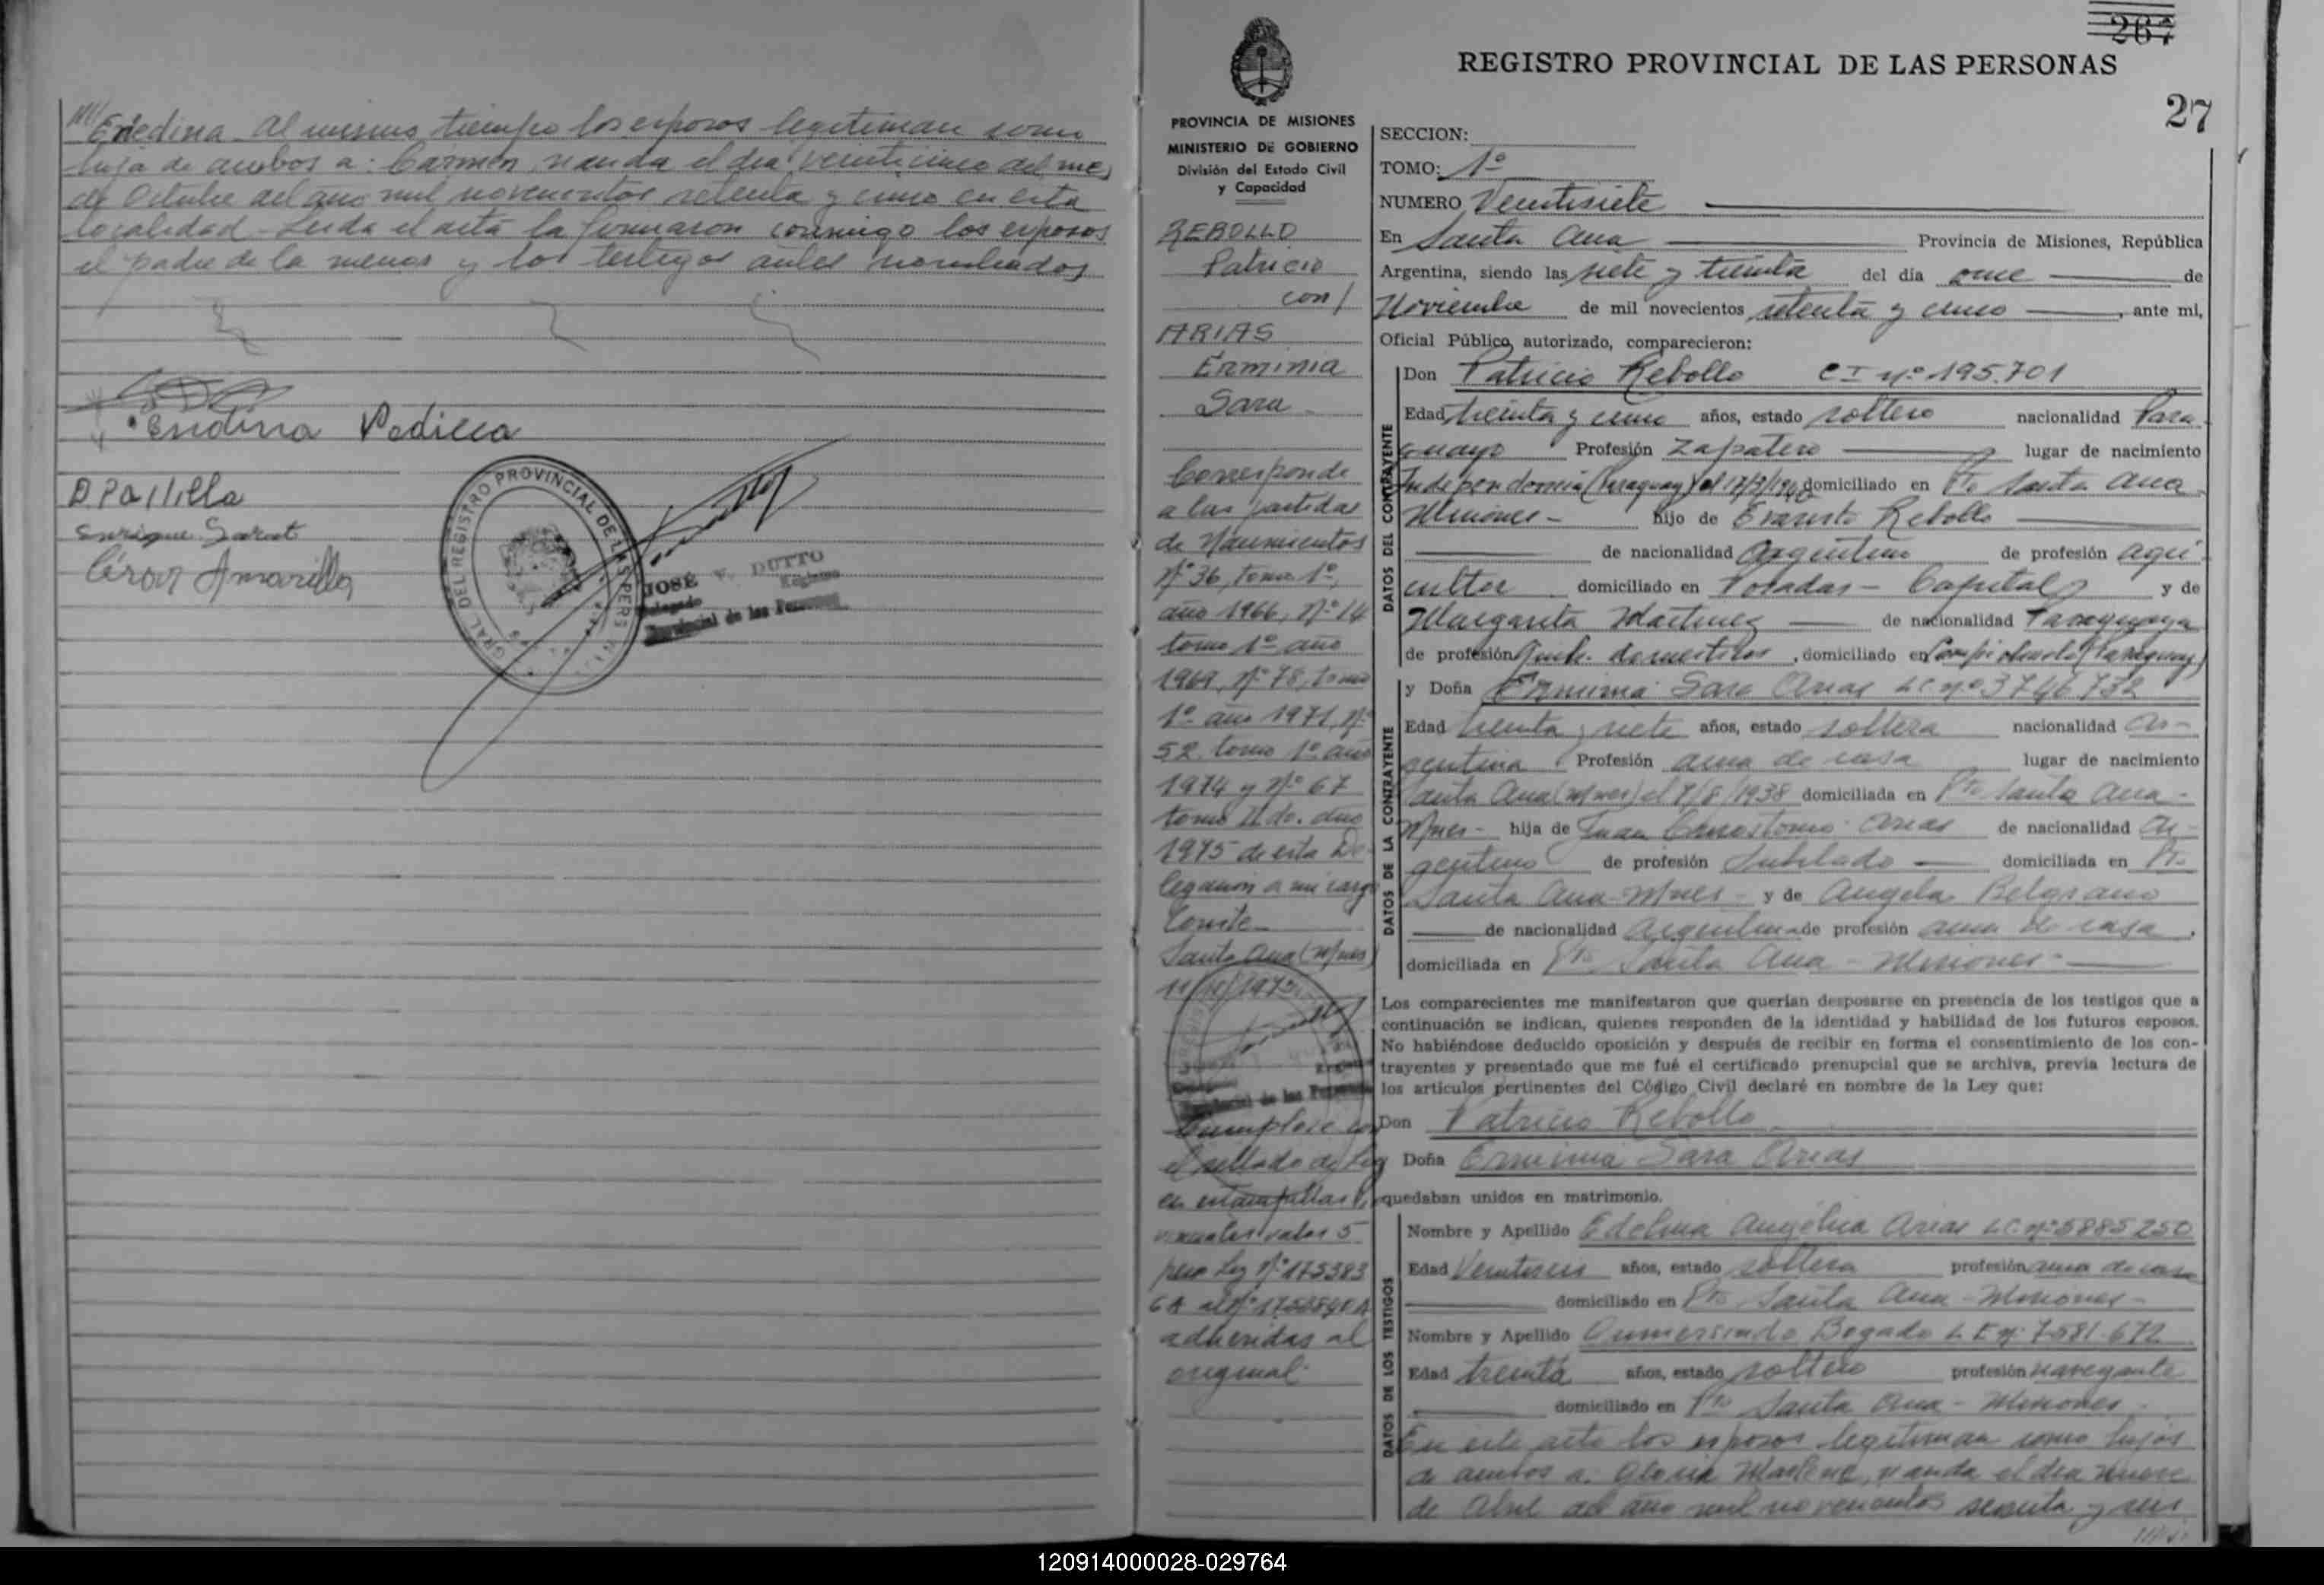 Enedina - Al mismo tiempo los esposos legitiman como
hija de ambos a: Carmen, nacida el dia veinticinco del mes
de Octubre del año mil novecientos setenta y cinco en esta
localidad - Leida el acta la firmaron conmigo los esposos
el padre de la menor y los testigos antes nombrados
Endina Padilla
D Padilla
Enrique
Amarilla
GRAL DEL REGISTRO PROVINCIAL DE LAS PERS
JOSÉ V. DUTTO
Delegado Registro
Provincial de las Personas
PROVINCIA DE MISIONES
MINISTERIO DE GOBIERNO
División del Estado Civil
y Capacidad
REBOLLO
Patricio
con/
ARIAS
Erminia
Sara
Corresponde
a las partidas
de Nacimientos
Nº 36, tomo 1º,
año 1966, Nº 14
tomo 1º año
1969, Nº 78, tomo
1º año 1971, Nº
52 tomo 1º año
1974 y Nº 67
tomo IIdo. año
1975 de esta De
legación a mi cargo
Conste -
Santa Ana (Mnes)
11/11/1975
Provincial de las Personas
Cumplese con
el sellado de Ley
en estampillas
valor 5
peso Ley
adheridas al
original-
267
REGISTRO PROVINCIAL DE LAS PERSONAS
27
SECCION:
TOMO: 1º
NUMERO Veintisiete
En Santa Ana Provincia de Misiones, República
Argentina, siendo las siete y treinta del día once de
Noviembre de mil novecientos setenta y cinco, ante mi,
Oficial Público, autorizado, comparecieron:
DATOS DEL CONTRAYENTE
Don Patricio Rebollo C I nº 195.701
Edad treinta y cinco años, estado soltero nacionalidad Para-
guayo Profesión Zapatero lugar de nacimiento
Independencia (Paraguay) el 17/3/1940 domiciliado en Pto Santa Ana
Misiones - hijo de Evaristo Rebollo
de nacionalidad Argentino de profesión agri-
cultor domiciliado en Posadas - Capital y de
Margarita Martinez de nacionalidad Paraguaya
de profesión Queh. domesticos, domiciliado en (Paraguay)
DATOS DE LA CONTRAYENTE
y Doña Erminia Sara Arias LC nº 3746732
Edad treinta y siete años, estado soltera nacionalidad Ar-
gentina Profesión ama de casa lugar de nacimiento
Santa Ana (Mnes) el 7/8/1938 domiciliada en Pto Santa Ana -
Mnes - hija de Juan Arias de nacionalidad Ar-
gentino de profesión Jubilado domiciliada en Pto
Santa Ana - Mnes - y de Angela Belgrano
de nacionalidad Argentina de profesión ama de casa,
domiciliada en Pto Santa Ana - Misiones -
Los comparecientes me manifestaron que querían desposarse en presencia de los testigos que a
continuación se indican, quienes responden de la identidad y habilidad de los futuros esposos.
No habiéndose deducido oposición y después de recibir en forma el consentimiento de los con-
trayentes y presentado que me fué el certificado prenupcial que se archiva, previa lectura de
los artículos pertinentes del Código Civil declaré en nombre de la Ley que:
Don Patricio Rebollo
Doña Erminia Sara Arias
quedaban unidos en matrimonio.
DATOS DE LOS TESTIGOS
Nombre y Apellido Edelma Angélica Arias LC nº 5885250
Edad Veintiseis años, estado soltera profesión ama de casa
domiciliado en Pto Santa Ana - Misiones -
Nombre y Apellido Gumersindo Bogado L E nº 7581.672
Edad treinta años, estado soltero profesión navegante
domiciliado en Pto Santa Ana - Misiones
En este acto los esposos legitiman como hijos
de ambos a: Gloria Marlene, nacida el dia nueve
de Abril del año mil novecientos sesenta y seis
120914000028-029764